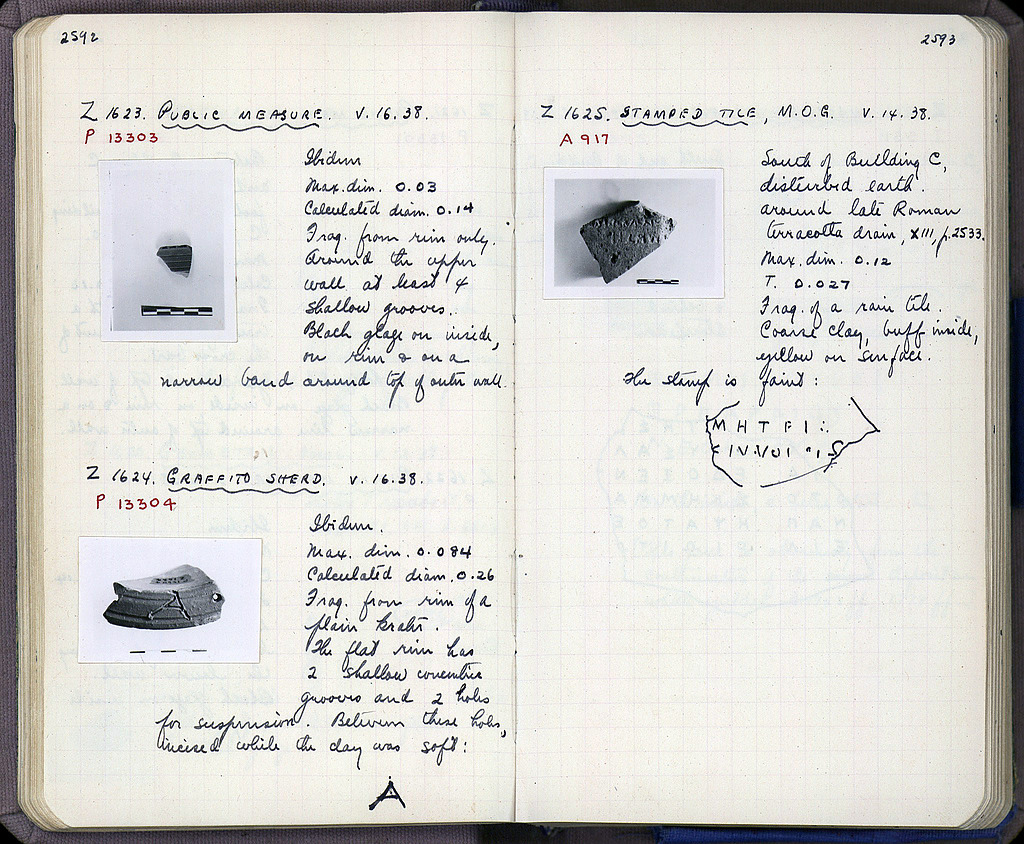 2592
Z 1623. PUBLIC MEASURE. V. 16. 38.
P 13303
Ibidum
Max. dim. 0.03
Calculated diam. 0.14
Frag. from rim only.
Around the upper
wall at least 4
shallow grooves.
Black glaze on inside,
on rim & on a
narrow band around top of outer wall.
Z 1624. GRAFFITO SHERD. V. 16. 38.
P 13304
Ibidum.
Max. dim. 0.084
Calculated diam. 0.26
Frag. from rim of a
plain krater.
The flat rim has
2 shallow concentric
grooves and 2 holes
for suspension. Between these holes,
incised while the clay was soft:
A
2593
Z 1625. STAMPED TILE, M.O.G. V. 14. 38.
A 917
South of Building C,
disturbed earth
around late Roman
terracotta drain, XIII, p. 2533.
Max. dim. 0.12
T. 0.027
Frag. of a rain tile.
Coarse clay, buff inside,
yellow on surface.
The stamp is faint:
M H T P I